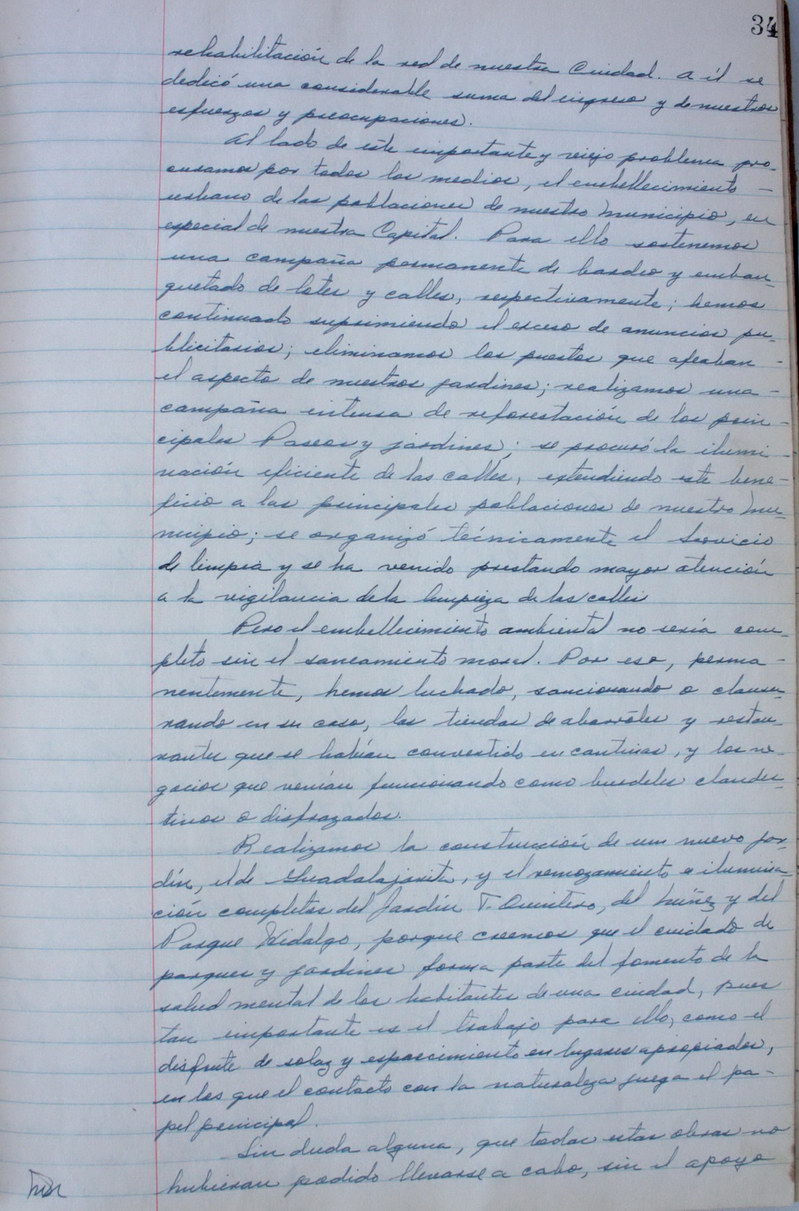 34
rehabilitación de la red de nuestra Ciudad. A él se
dedicó una considerable suma del ingreso y de nuestros
esfuerzos y preocupaciones.
Al lado de éste importante y viejo problema pro-
curamos por todos los medios, el embellecimiento -
urbano de las poblaciones de nuestro Municipio, en
especial de nuestra Capital. Para ello sostenemos
una campaña permanente de bardeo y emban-
quetado de lotes y calles, respectivamente; hemos
continuado suprimiendo el exceso de anuncios pu-
blicitarios; eliminamos los puestos que afeaban -
el aspecto de nuestros jardines; realizamos una -
campaña intensa de reforestación de los prin-
cipales Paseos y jardines; se procuró la ilumi-
nación eficiente de las calles, extendiendo este bene-
ficio a las principales poblaciones de nuestro Mu-
nicipio; se organizó técnicamente el Servicio
de limpia y se ha venido prestando mayor atención
a la vigilancia de la limpieza de las calles
Pero el embellecimiento ambiental no sería com-
pleto sin el saneamiento moral. Por eso, perma-
nentemente, hemos luchado, sancionando o clausu-
rando en su caso, las tiendas de abarrotes y restau-
rantes que se habían convertido en cantinas, y los ne-
gocios que venían funcionando como burdeles clandes-
tinos o disfrazados.
Realizamos la construcción de un nuevo jar-
dín, el de Guadalajarita, y el remozamiento e ilumina-
ción completos del Jardín T. Quintero, del Núñez y del
Parque Hidalgo, porque creemos que el cuidado de
parques y jardines forma parte del fomento de la
salud mental de los habitantes de una ciudad, pues
tan importante es el trabajo para ello, como el
disfrute de solaz y esparcimiento en lugares apropiados,
en los que el contacto con la naturaleza juega el pa-
pel principal.
Sin duda alguna, que todas estas obras no
hubieran podido llevarse a cabo, sin el apoyo